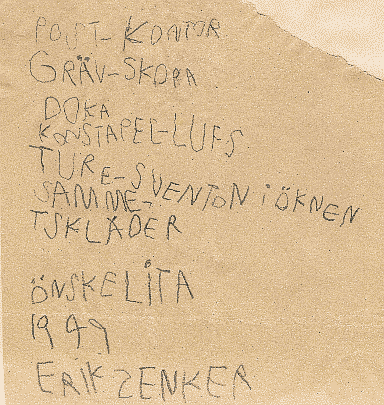 POST-KONTOR
GRÄV-SKOPA
DOKA
KONSTAPEL-LUFS
TURE-SVENTON i ÖKNEN
SAMME-
TSKLÄDER
ÖNSKELiTA
1949
ERIK ZENKER